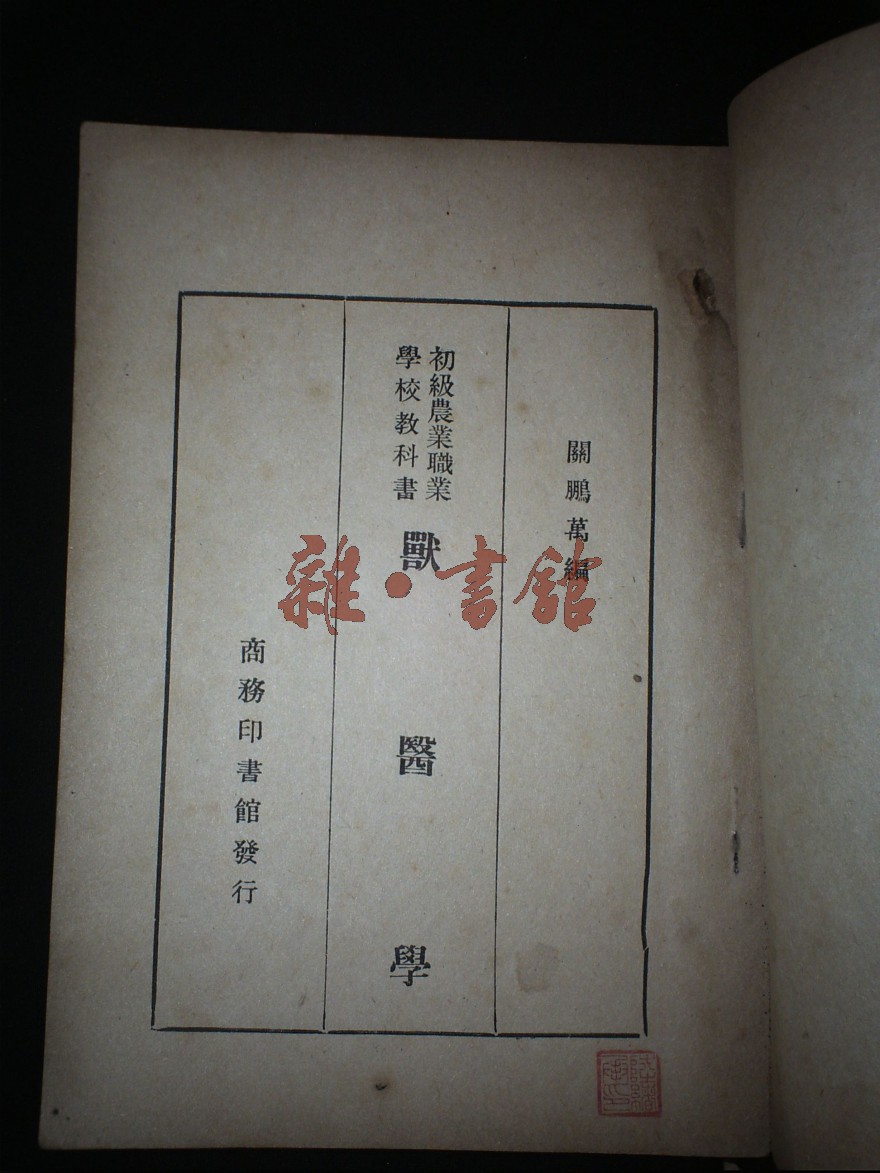 關鵬萬編
初級農業職業
學校教科書
獸醫學
商務印書館發行
雜·書館